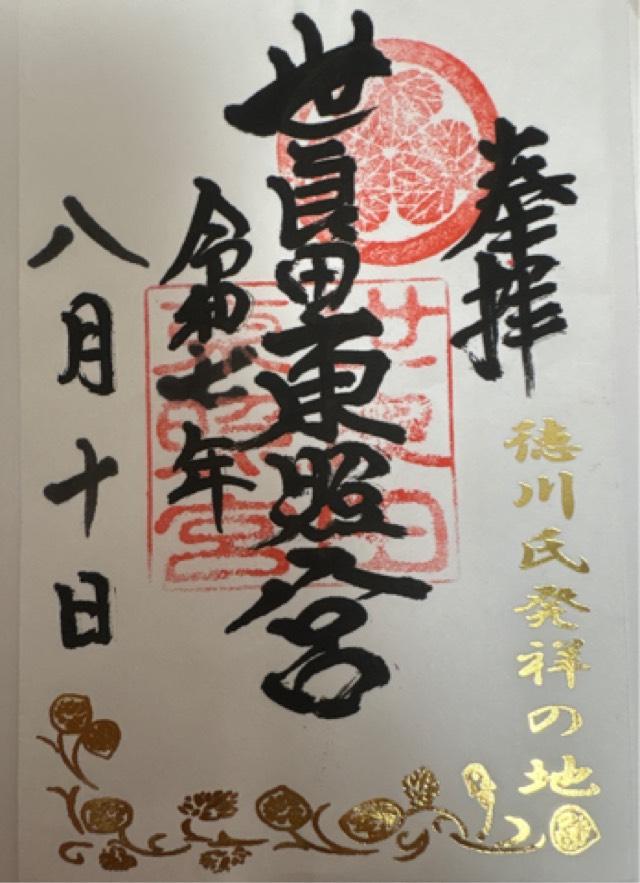 奉拝
徳川氏発祥の地
世良田東照宮
令和七年
八月十日